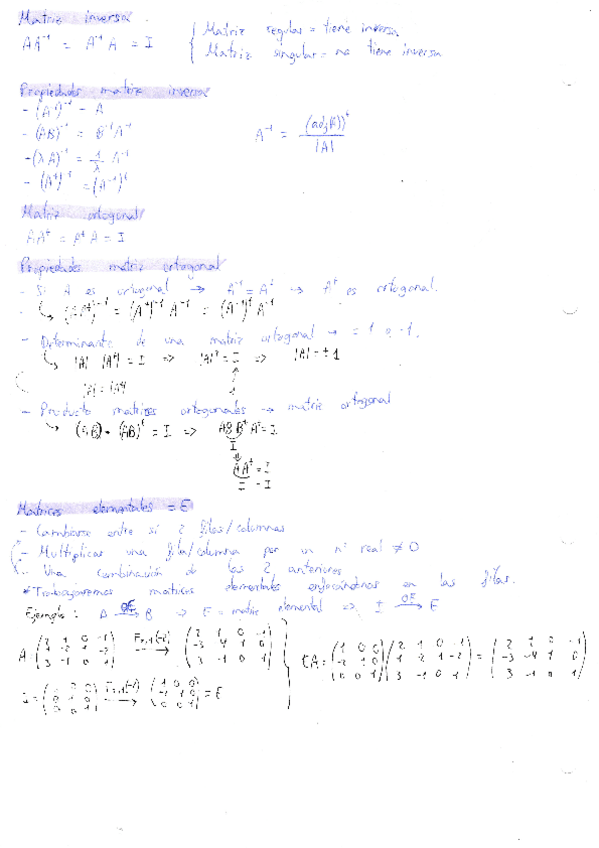 Matriz inversa
A A⁻¹ = A⁻¹ A = I { Matriz regular = tiene inversa
Matriz singular = no tiene inversa
Propiedades matriz inversa
- (A⁻¹)⁻¹ = A
- (AB)⁻¹ = B⁻¹A⁻¹
A⁻¹ = (adj(A))ᵗ / |A|
- (λA)⁻¹ = 1/λ A⁻¹
- (Aᵗ)⁻¹ = (A⁻¹)ᵗ
Matriz ortogonal
AAᵗ = AᵗA = I
Propiedades matriz ortogonal
- Si A es ortogonal → A⁻¹ = Aᵗ → Aᵗ es ortogonal.
- ↳ (AAᵗ)⁻¹ = (Aᵗ)⁻¹ A⁻¹ = (A⁻¹)ᵗ A⁻¹
- Determinante de una matriz ortogonal → = 1 o -1.
↳ |A| |Aᵗ| = I ⇒ |A|² = I ⇒ |A| = ±1
|A| = |Aᵗ|
1
- Producto matrices ortogonales → matriz ortogonal
↳ (AB) · (AB)ᵗ = I ⇒ ABBᵗAᵗ = I
I
AAᵗ = I
I = I
Matrices elementales = E
- Cambiarse entre sí 2 filas/columnas
- Multiplicar una fila/columna por un nº real ≠ 0
- Una combinación de las 2 anteriores
* Trabajaremos matrices elementales enfocándonos en las filas.
Ejemplo: A →OE B ⇒ E = matriz elemental ⇒ I →OE E